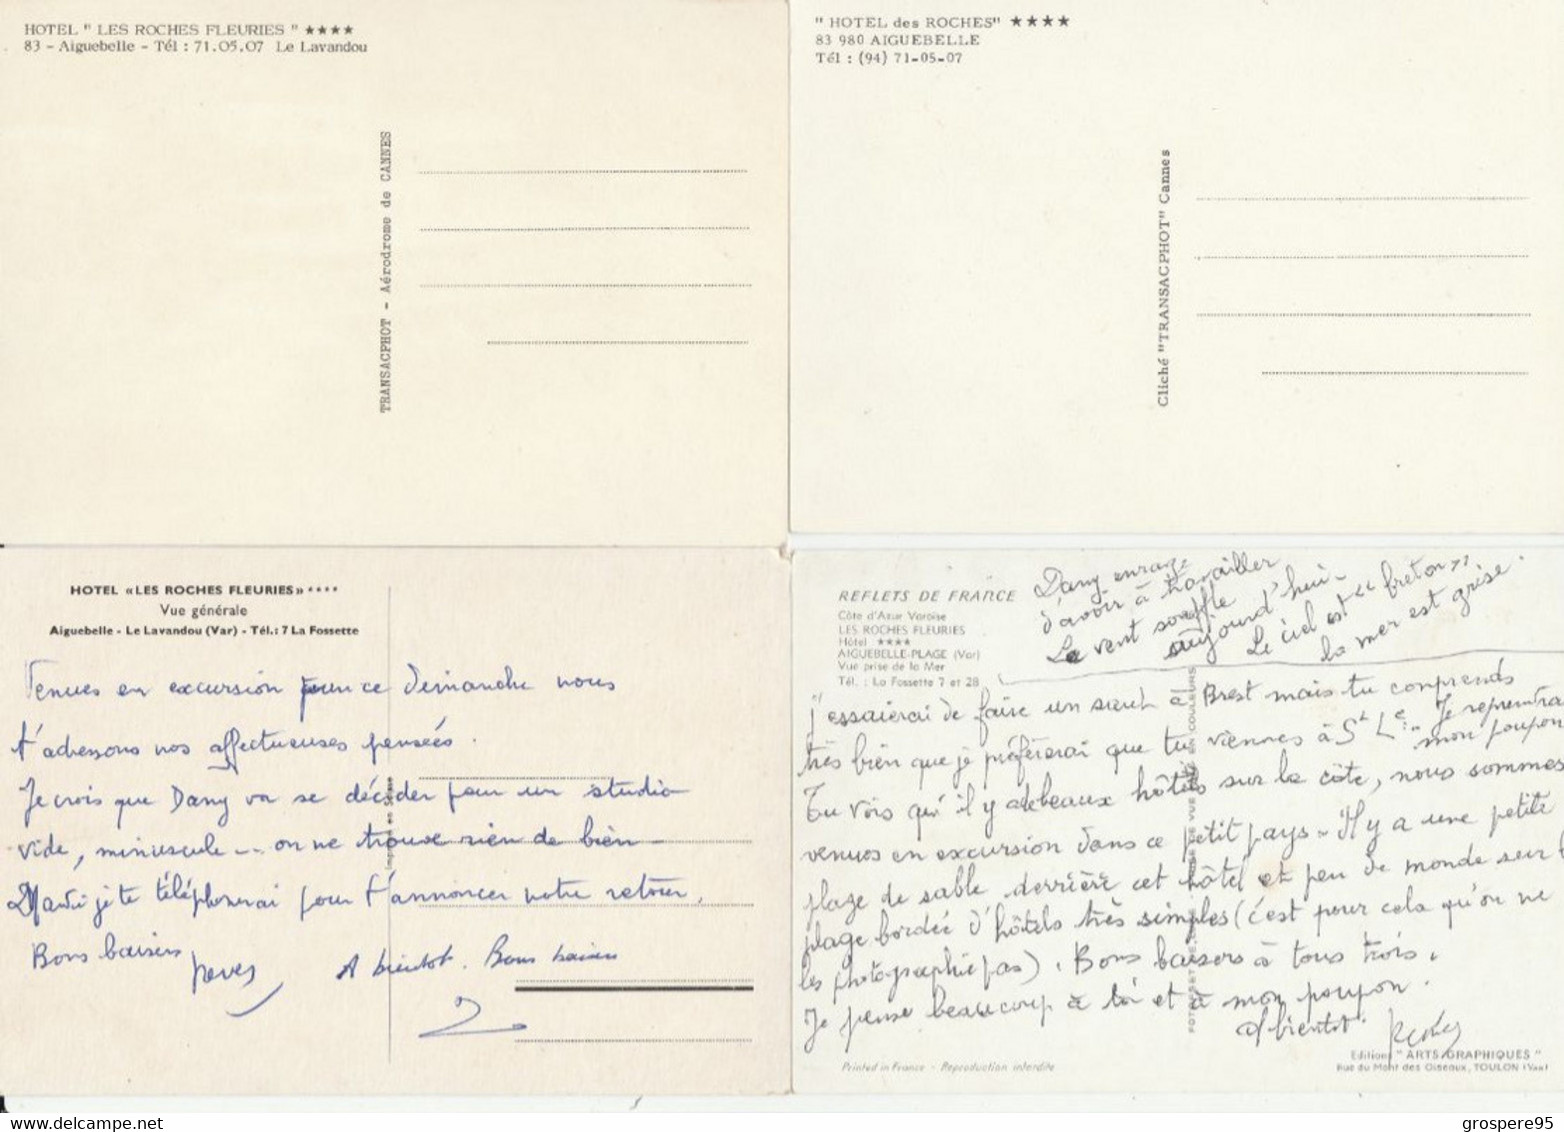 HOTEL " LES ROCHES FLEURIES " ★★★★
83 - Aiguebelle - Tél : 71.05.07 Le Lavandou
TRANSACPHOT - Aérodrome de CANNES
" HOTEL des ROCHES" ★★★★
83 980 AIGUEBELLE
Tél : (94) 71-05-07
Cliché "TRANSACPHOT" Cannes
HOTEL «LES ROCHES FLEURIES» ★★★★
Vue générale
Aiguebelle - Le Lavandou (Var) - Tél.: 7 La Fossette
Venues en excursion ce Dimanche nous
t'adressons nos affectueuses pensées.
Je crois que Dany va se décider pour un studio
vide, minuscule -- on ne trouve rien de bien -
Mardi je te téléphonerai pour t'annoncer notre retour.
Bons baisers
A bientot. Bons baisers
REFLETS DE FRANCE
Côte d'Azur Varoise
LES ROCHES FLEURIES
Hôtel ★★★★
AIGUEBELLE-PLAGE (Var)
Vue prise de la Mer
Tél. : La Fossette 7 et 28
Dany enrage
d'avoir à travailler
Le vent souffle
aujourd'hui -
Le ciel est « breton »
la mer est grise.
J'essaierai de faire un saut à Brest mais tu comprends
très bien que je préfèrerai que tu viennes à St L. - Je reprendrai
mon poupon
Tu vois qu'il y a de beaux hôtels sur la côte, nous sommes
venues en excursion dans ce petit pays - Il y a une petite
plage de sable derrière cet hôtel et peu de monde sur la
plage bordée d'hôtels très simples (c'est pour cela qu'on ne
les photographie pas). Bons baisers à tous trois.
Je pense beaucoup à toi et à mon poupon.
A bientot.
Printed in France - Reproduction interdite
Editions "ARTS GRAPHIQUES"
Rue du Mont des Oiseaux, TOULON (Var)
grospere95